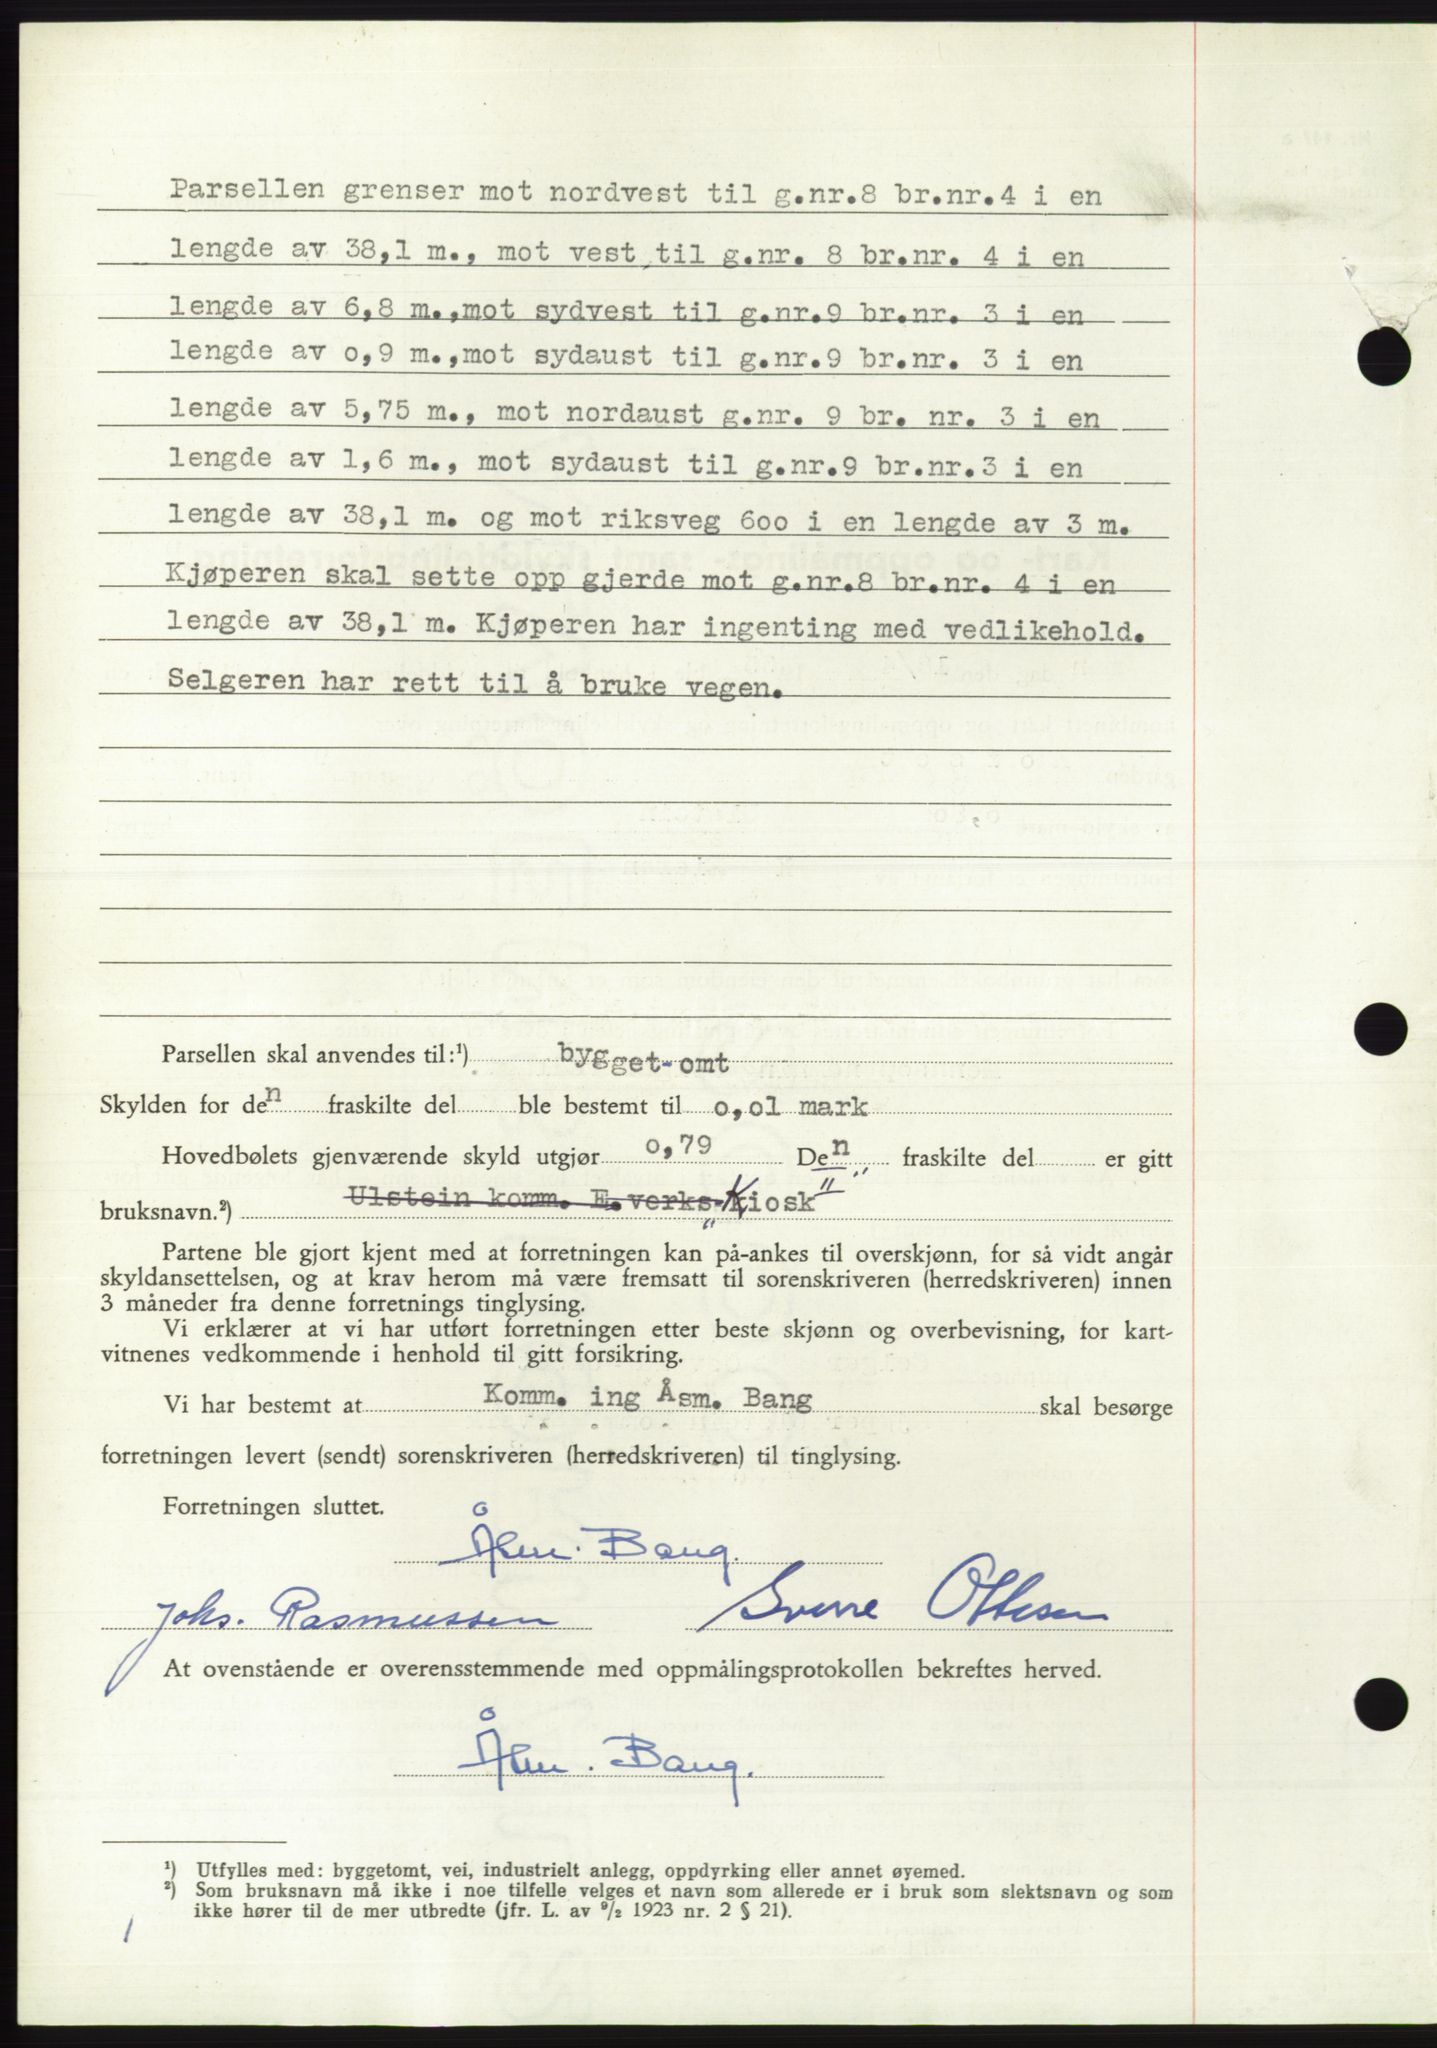 Parsellen grenser mot nordvest til g.nr.8 br.nr.4 i en
lengde av 38,1 m., mot vest til g.nr. 8 br.nr. 4 i en
lengde av 6,8 m.,mot sydvest til g.nr.9 br.nr. 3 i en
lengde av o,9 m.,mot sydaust til g.nr.9 br.nr. 3 i en
lengde av 5,75 m., mot nordaust g.nr. 9 br. nr. 3 i en
lengde av 1,6 m., mot sydaust til g.nr.9 br.nr.3 i en
lengde av 38,1 m. og mot riksveg 6oo i en lengde av 3 m.
Kjøperen skal sette opp gjerde mot g.nr.8 br.nr. 4 i en
lengde av 38,1 m. Kjøperen har ingenting med vedlikehold.
Selgeren har rett til å bruke vegen.
Parsellen skal anvendes til:¹) bygget-omt
Skylden for den fraskilte del ble bestemt til o,o1 mark
Hovedbølets gjenværende skyld utgjør o,79 Den fraskilte del er gitt
bruksnavn.²) Ulstein komm. E.verks- "Kiosk"
Partene ble gjort kjent med at forretningen kan på-ankes til overskjønn, for så vidt angår
skyldansettelsen, og at krav herom må være fremsatt til sorenskriveren (herredskriveren) innen
3 måneder fra denne forretnings tinglysing.
Vi erklærer at vi har utført forretningen etter beste skjønn og overbevisning, for kart-
vitnenes vedkommende i henhold til gitt forsikring.
Vi har bestemt at Komm. ing Åsm. Bang skal besørge
forretningen levert (sendt) sorenskriveren (herredskriveren) til tinglysing.
Forretningen sluttet.
Åsm. Bang.
Johs. Rasmussen Sverre Ottesen
At ovenstående er overensstemmende med oppmålingsprotokollen bekreftes herved.
Åsm. Bang.
¹) Utfylles med: byggetomt, vei, industrielt anlegg, oppdyrking eller annet øyemed.
²) Som bruksnavn må ikke i noe tilfelle velges et navn som allerede er i bruk som slektsnavn og som
ikke hører til de mer utbredte (jfr. L. av 9/2 1923 nr. 2 § 21).